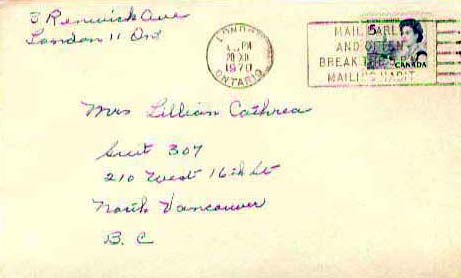 3 Renwick Ave
London 11 Ont
LONDON
PM
20 XII
1970
ONTARIO
MAIL EARLY
AND OFTEN
BREAK THE 5 P.M.
MAILING HABIT
5
CANADA
Mrs Lillian Cathrea
Suit 307
210 West 16th St
North Vancouver
B. C